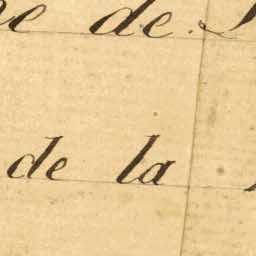 de
de la